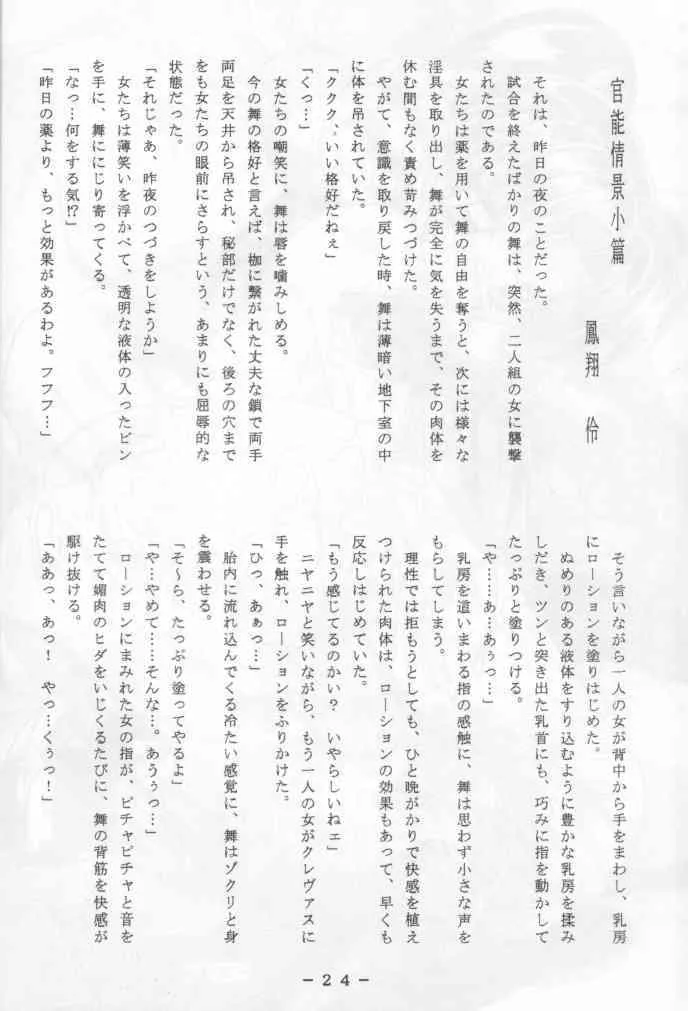 官能情景小篇
鳳翔 伶
それは、昨日の夜のことだった。
試合を終えたばかりの舞は、突然、二人組の女に襲撃
されたのである。
女たちは薬を用いて舞の自由を奪うと、次には様々な
淫具を取り出し、舞が完全に気を失うまで、その肉体を
休む間もなく責め苛みつづけた。
やがて、意識を取り戻した時、舞は薄暗い地下室の中
に体を吊されていた。
「ククク、いい格好だねぇ」
「くっ…」
女たちの嘲笑に、舞は唇を噛みしめる。
今の舞の格好と言えば、枷に繋がれた丈夫な鎖で両手
両足を天井から吊され、秘部だけでなく、後ろの穴まで
をも女たちの眼前にさらすという、あまりにも屈辱的な
状態だった。
「それじゃあ、昨夜のつづきをしようか」
女たちは薄笑いを浮かべて、透明な液体の入ったビン
を手に、舞ににじり寄ってくる。
「なっ…何をする気!?」
「昨日の薬より、もっと効果があるわよ。フフフ…」
そう言いながら一人の女が背中から手をまわし、乳房
にローションを塗りはじめた。
ぬめりのある液体をすり込むように豊かな乳房を揉み
しだき、ツンと突き出た乳首にも、巧みに指を動かして
たっぷりと塗りつける。
「や……あ…あぅっ…」
乳房を這いまわる指の感触に、舞は思わず小さな声を
もらしてしまう。
理性では拒もうとしても、ひと晩がかりで快感を植え
つけられた肉体は、ローションの効果もあって、早くも
反応しはじめていた。
「もう感じてるのかい? いやらしいねェ」
ニヤニヤと笑いながら、もう一人の女がクレヴァスに
手を触れ、ローションをふりかけた。
「ひっ、あぁっ…」
胎内に流れ込んでくる冷たい感覚に、舞はゾクリと身
を震わせる。
「そ～ら、たっぷり塗ってやるよ」
「や…やめて……そんな…。あうぅっ…」
ローションにまみれた女の指が、ピチャピチャと音を
たてて媚肉のヒダをいじくるたびに、舞の背筋を快感が
駆け抜ける。
「ああっ、あっ! やっ…くぅっ!」
－24－